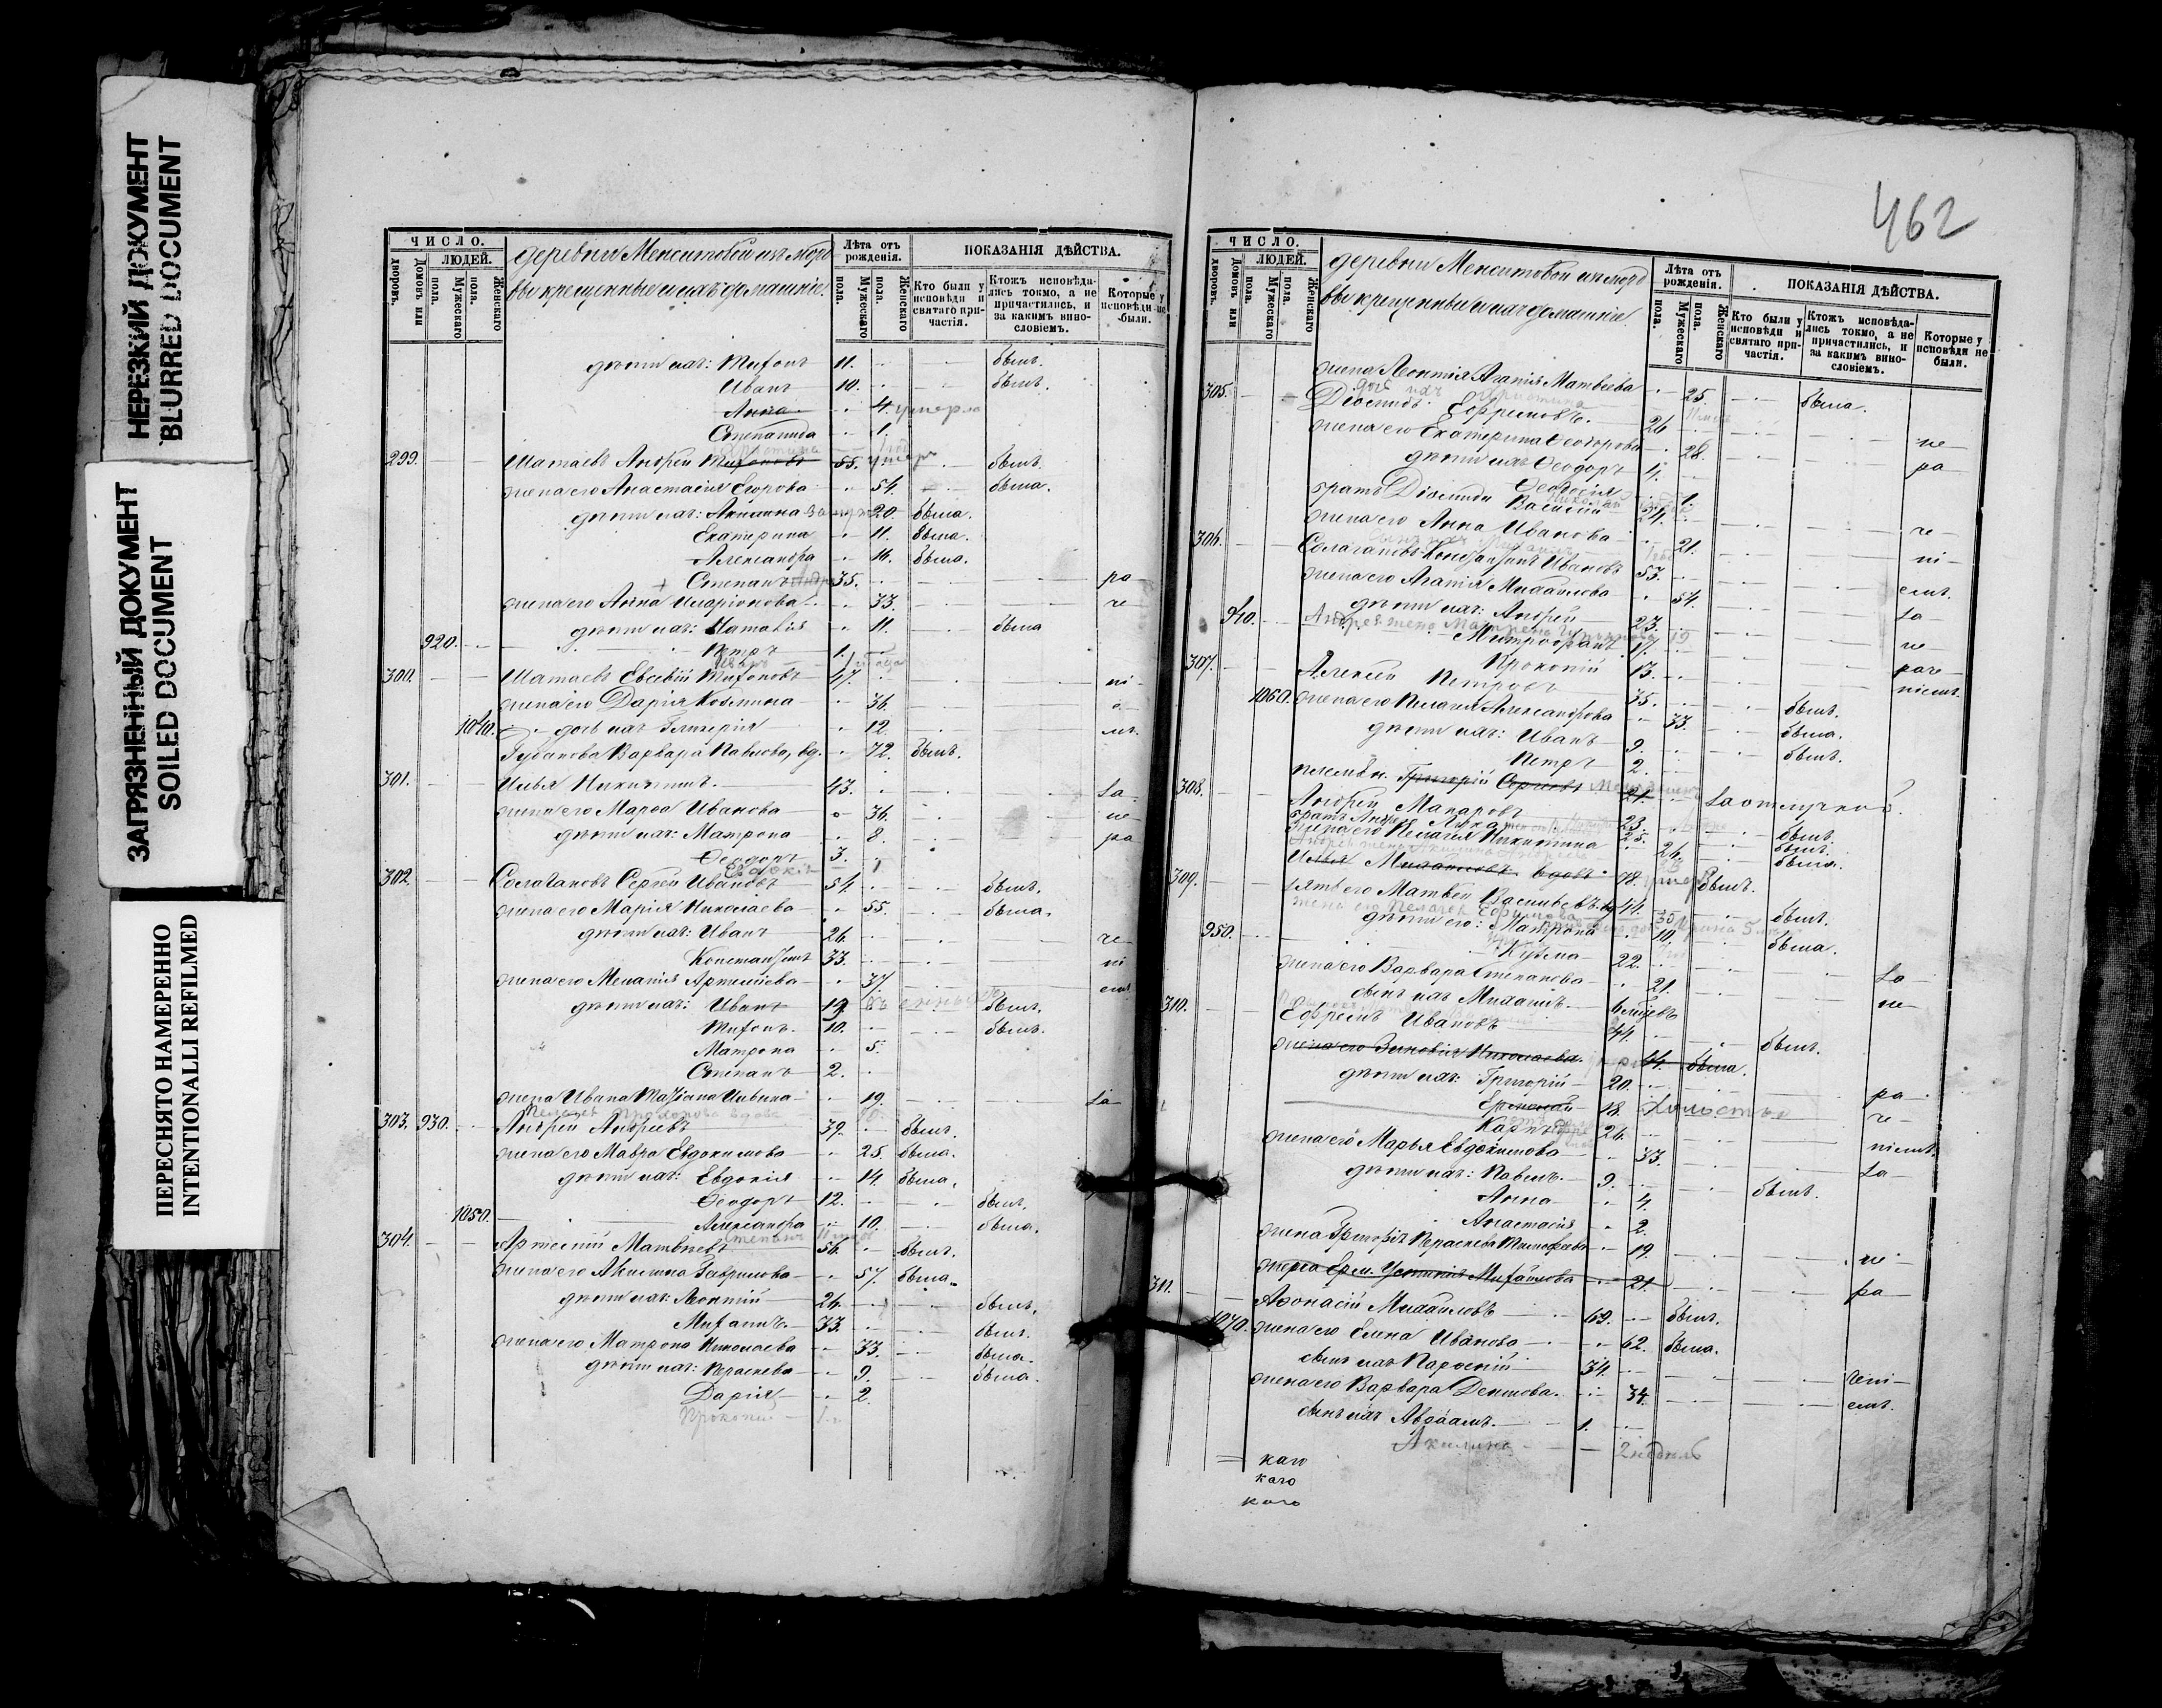 НЕРЕЗКИЙ ДОКУМЕНТ
BLURRED DOCUMENT
ЗАГРЯЗНЕННЫЙ ДОКУМЕНТ
SOILED DOCUMENT
ПЕРЕСНЯТО НАМЕРЕННО
INTENTIONALLI REFILMED
ЧИСЛО.
Домовъ или дворовъ.
ЛЮДЕЙ.
Мужескаго пола.
Женскаго пола.
деревни Менситовой изъ морд
вы крещенные и ихъ домашніе.
Лѣта отъ рожденія.
Мужескаго пола.
Женскаго пола.
ПОКАЗАНІЯ ДѢЙСТВА.
Кто были у исповѣди и святаго причастія.
Ктожъ исповѣдались токмо, а не причастились, и за какимъ винословіемъ.
Которые у исповѣди не были.
дѣти ихъ: Тихонъ 11. былъ.
Иванъ 10. былъ.
Анна 4. умерла
Степанида 1.
299. Шатаевъ Андрей Тихоновъ 55. умеръ былъ.
жена его Анастасія Егорова 54. была.
дѣти ихъ: 20. была.
Екатерина 11. была.
Александра 16. была.
Степанъ 35. ра
жена его Анна Иларіонова 33. че
дѣти ихъ: 11. была
920. Петръ 1.
300. Шатаевъ Евсевій Тихоновъ 47. ні
жена его Дарія Козмина 36.
1040. дочь ихъ Гликерія 12.
Губанова Варвара Павлова, вд. 72. былъ.
301. Илья Никитинъ. 43. за
жена его Марѳа Иванова 36. не
дѣти ихъ: Матрона 8. ра
Ѳеодоръ 3.
Евдокія 1
302. Солагановъ Сергій Ивановъ 54. былъ.
жена его Марія Николаева 55. была.
дѣти ихъ: Иванъ 26. че
Константинъ 33. ні
жена его Меланія Артеміева 37. емъ
дѣти ихъ: Иванъ 19. былъ.
Тихонъ. 10. былъ.
Матрона 5.
Степанъ 2.
жена Ивана Татіана Ильина 19. за
303. 930. Андрей Андреевъ 39. былъ.
жена его Мавра Евдокимова 25. была.
дѣти ихъ: Евдокія 14. была.
Ѳеодоръ 12. былъ.
1050. Александра 10. была.
304. Артемій Матвѣевъ 56. былъ.
жена его Акилина Гаврилова 57. была.
дѣти ихъ: Леонтій 26. былъ.
Михаилъ. 33. былъ.
жена его Матрона Николаева 33. была.
дѣти ихъ: Параскева 9. была.
Дарія 2.
Прокопій 1.
462
ЧИСЛО.
Домовъ или дворовъ.
ЛЮДЕЙ.
Мужескаго пола.
Женскаго пола.
деревни Менситовой изъ морд
вы крещенные и ихъ домашніе.
Лѣта отъ рожденія.
Мужескаго пола.
Женскаго пола.
ПОКАЗАНІЯ ДѢЙСТВА.
Кто были у исповѣди и святаго причастія.
Ктожъ исповѣдались токмо, а не причастились, и за какимъ винословіемъ.
Которые у исповѣди не были.
жена Леонтія Агапія Матвѣева 25. была.
дочь ихъ Христина
305. Діомидъ Ефремовъ. 26 не
жена его Екатерина Ѳеодорова 28. ра
дѣти ихъ Ѳеодоръ 4.
Ѳеодосія 1.
братъ Діомида Василій 24. че
жена его Анна Иванова 21. ні
306. Солагановъ Константинъ Ивановъ 53. емъ.
жена его Агапія Михайлова 54. за
дѣти ихъ: Андрей 23. не
940. Андрея жена Матрона 19
Митрофанъ 17. раче
Прокопій 13. ніемъ.
307. Алексѣй Петровъ 35. былъ.
1060. жена его Пелагія Александрова 33. была.
дѣти ихъ: Иванъ 9. былъ.
Петръ 2.
племян. Григорій Сергіевъ 21. за отлучкой.
308. Андрей Макаровъ 23. былъ.
братъ Андрея Лука 25. былъ.
жена его Пелагія Никитина 26. была.
309. Илья Михайловъ вдовъ 78. умеръ былъ.
зять его Матвѣй Васильевъ вд 44. былъ.
жена его Пелагея Ефимова 35
дѣти его: Матрона 10. была.
950. Кузьма 22. за
жена его Варвара Степанова 21. не
сынъ ихъ Михаилъ.
310. Ефремъ Ивановъ 44. былъ.
жена его Зиновія Николаева. 44. была.
дѣти ихъ: Григорій 20. ра
Ермолай 18. че
Карпъ 26. ніемъ.
жена его Марья Евдокимова 33. за
дѣти ихъ: Павелъ. 9. былъ.
Анна 4.
Анастасія 2.
жена Григорія Параскева Тимофеева 19. не
жена Ерм. Устинія Михайлова 21. ра
311. Афонасій Михайловъ 69. былъ.
1070. жена его Елена Иванова 62. была.
сынъ ихъ 34. чені
жена его Варвара Денисова. 34. емъ.
сынъ ихъ Авраамъ. 1.
Акилина 2 недѣль
каго
каго
каго